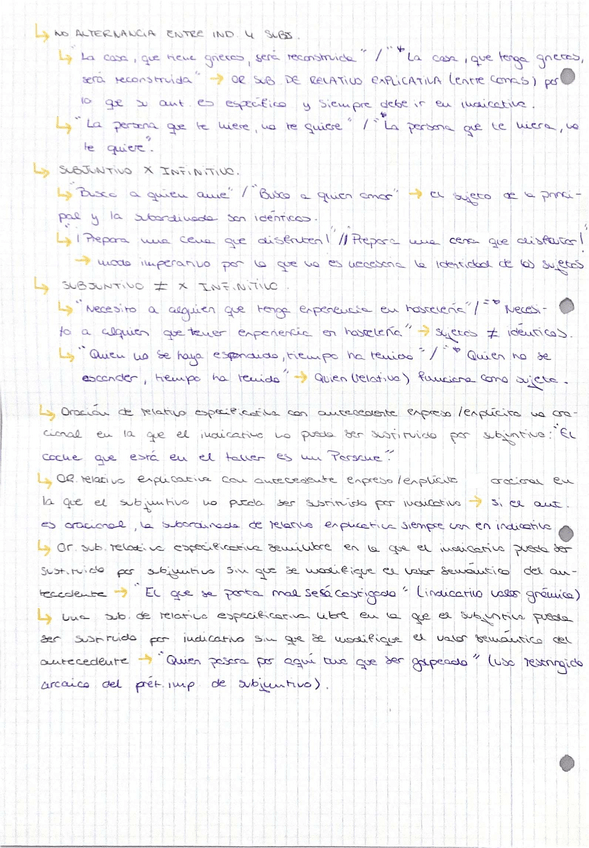 ↳ NO ALTERNANCIA ENTRE IND. Y SUBJ.
↳ "La casa, que tiene grietas, será reconstruida" / "*La casa, que tenga grietas,
será reconstruida" → OR SUB DE RELATIVO EXPLICATIVA (entre comas) por
lo que su ant. es específico y siempre debe ir en indicativo.
↳ "La persona que te hiere, no te quiere" / "*La persona que te hiera, no
te quiere".
↳ SUBJUNTIVO X INFINITIVO.
↳ "Busco a quien ame" / "Busco a quien amar" → el sujeto de la princi-
pal y la subordinada son idénticos.
↳ "¡Prepara una cena que disfruten!" // "¡Prepara una cena que disfrutar!"
→ modo imperativo por lo que no es necesaria la identidad de los sujetos
↳ SUBJUNTIVO ≠ X INFINITIVO.
↳ "Necesito a alguien que tenga experiencia en hostelería" / "*Necesi-
to a alguien que tener experiencia en hostelería" → sujetos ≠ idénticos.
↳ "Quien no se haya escondido, tiempo ha tenido" / "*Quien no se
esconder, tiempo ha tenido" → Quien (relativo) funciona como sujeto.
↳ Oración de relativo especificativa con antecedente expreso/explícito no ora-
cional en la que el indicativo no pueda ser sustituido por subjuntivo: "El
coche que está en el taller es un Porsche".
↳ OR relativo explicativa con antecedente expreso/explícito oracional en
la que el subjuntivo no pueda ser sustituido por indicativo → si el ant.
es oracional, la subordinada de relativo explicativa siempre van en indicativo
↳ Or. sub. relativa especificativa semilibre en la que el indicativo pueda ser
sustituido por subjuntivo sin que se modifique el valor semántico del an-
tecedente → "El que se porta mal será castigado" (indicativo valor gnómico)
↳ Una sub. de relativo especificativa libre en la que el subjuntivo pueda
ser sustituido por indicativo sin que se modifique el valor semántico del
antecedente → "Quien pasara por aquí tuvo que ser golpeado" (uso restringido
arcaico del prét. imp de subjuntivo).